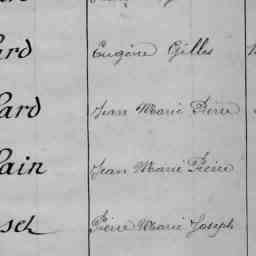 ard Eugène Gilles
ard Jean Marie Pierre
ain Jean Marie Pierre
sch Pierre Marie Joseph